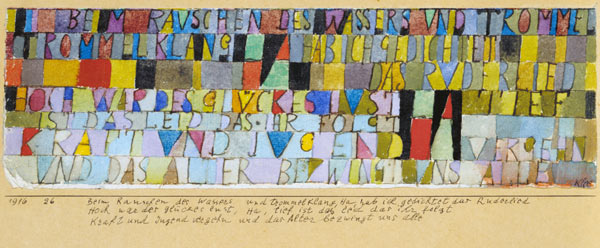 BEIM RAUSCHEN DES WASSERS UND TROMMEL
TROMMELKLANG HA HAB ICH GEDICHTET
DAS RUDERLIED
HOCH WAR DES GLÜCKES LUST HA TIEF
IST DAS LEID DAS IHR FOLGT
KRAFT UND JUGEND VERGEHN
UND DAS ALTER BEZWINGT UNS ALLE
Klee
1916 26 Beim Rauschen des Wassers und Trommelklang, Ha, hab ich gedichtet das Ruderlied
Hoch war des glückes lust, Ha, tief ist das leid das ihr folgt
Kraft und Jugend vergehn und das Alter bezwingt uns alle